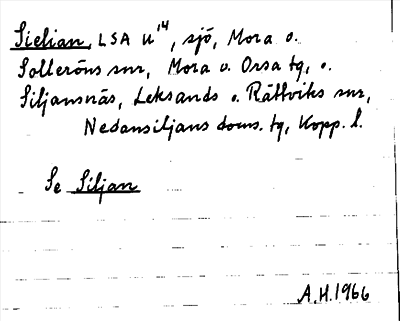 Sielian, LSA U'14, sjö, Mora o.
Solleröns snr, Mora o. Orsa tg, o.
Siljansnäs, Leksands o. Rättviks snr,
Nedansiljans doms. tg, Kopp. l.
Se Siljan
A.H. 1966